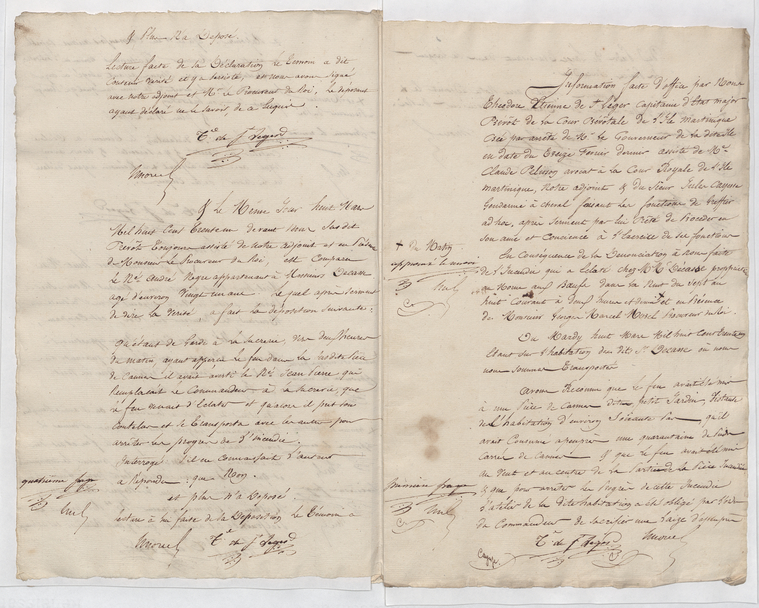 & Plus n'a Déposé.
Lecture faite de sa Déclaration le témoin a dit
contenir vérité et y a persisté, et nous avons signé
avec notre adjoint et Mr le Procureur du Roi, le déposant
ayant déclaré ne le savoir, de ce enquis.
& le Même Jour huit Mars
Mil huit Cent Trente un devant Nous Susdit
Prévôt Toujours assisté de notre adjoint et en présence
de Monsieur le Procureur du Roi, est Comparu
le Né André Nègre appartenant à Messieurs Decasse
agé d'environ Vingt un ans. le quel après serment
de dire la Vérité, a fait la déposition suivante:
Qu'étant de Garde à la Sucrerie, vers deux heures
du matin, ayant apperçu le feu dans la susdite pièce
de Cannes il avait averti le Né Jean Pierre qui
Remplaçait le Commandeur à la Sucrerie, que
le feu venait d'éclater et qu'alors il prit son
coutelas et se Transporta avec les autres pour
arrêter les progrès de l'incendie.
Interrogé s'il en connaissait l'auteur
a Répondu que Non.
et plus n'a Déposé
Lecture à lui faite de sa Déposition, le Témoin a
quatrième page
Information faite d'office par Nous
Théodore Etienne de St Léger Capitaine d'état major
Prévôt de la Cour Prévôtale de l'Ile Martinique
Créé par arrêté de Mr le Gouverneur de la dite Ile
en date du Treize Février dernier assisté de Mr
Claude avocat à la Cour Royale de l'Ile
martinique, Notre adjoint & du Sieur Jules
Gendarme à cheval faisant les fonctions de Greffier
ad hoc, après serment par lui Prêté de Procéder en
son âme et Conscience à l'exercice de ses fonctions
En Conséquence de la Dénonciation à nous faite
de l'Incendie qui a éclaté chez MM. Decasse propriétaires
au Morne aux Bœufs dans la Nuit du Sept au
huit Courant à Deux heures et demie et en Présence
de Monsieur Marcel Morel Procureur du Roi.
Du Mardy huit Mars Mil huit Cent Trente un
Étant sur l'habitation du dit Sr Decasse où nous
nous Sommes Transportés
avons Reconnu que le feu avait été mis
à une Pièce de Cannes dite Petit Jardin, Distante
de l'habitation d'environ Soixante Pas qu'il
avait Consumé à peu près une quarantaine de Pas
Carrés de Cannes & que le feu avait été mis
au Vent et au centre de la Partie de la Pièce Incendiée
& que pour arrêter les Progrès de cette Incendie
l'atelier de la Dite habitation a été obligé par l'ordre
du Commandeur de sacrifier une large d'
du Matin
approuvé le renvoi
première page